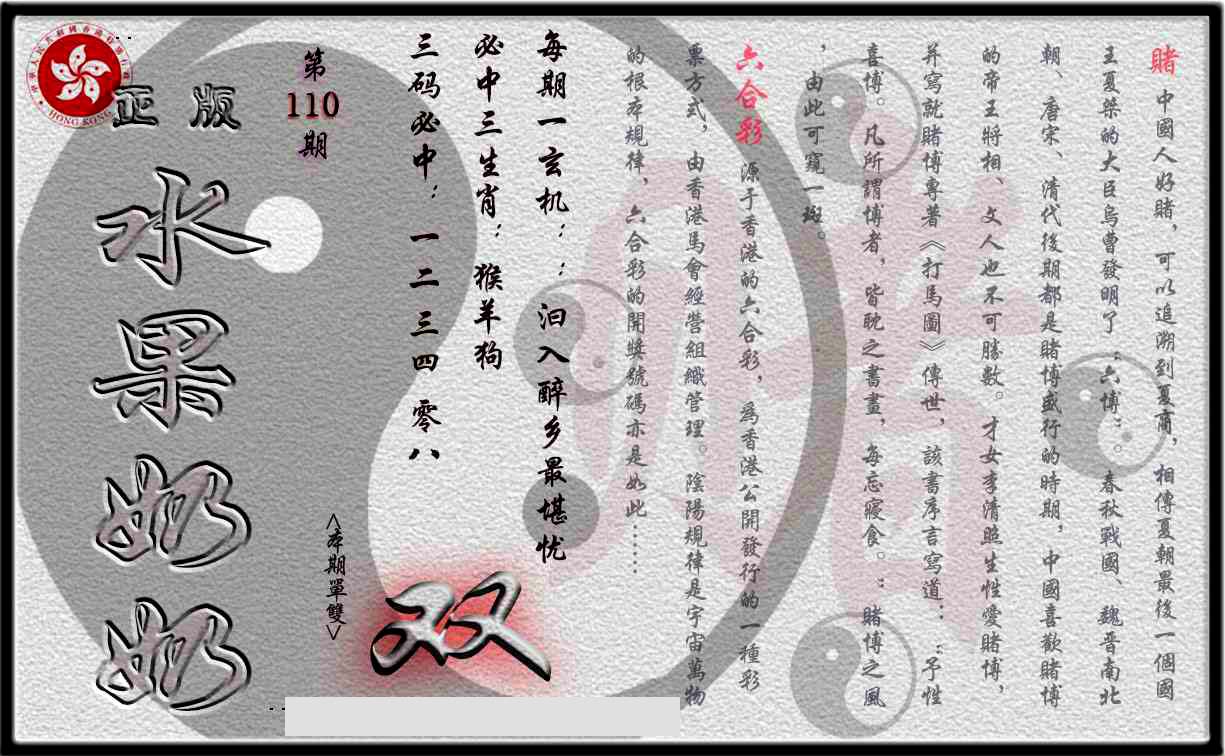 賭 中國人好賭，可以追溯到夏商，相傳夏朝最後一個國
王夏桀的大臣烏曹發明了“六博”。春秋戰國、魏晋南北
朝、唐宋、清代後期都是賭博盛行的時期，中國喜歡賭博
的帝王將相、文人也不可勝數。才女李清照生性愛賭博，
并寫就賭博專著《打馬圖》傳世，該書序言寫道：“予性
喜博。凡所謂博者，皆耽之書畫，每忘寢食。”賭博之風
，由此可窺一斑。
六合彩 源于香港的六合彩，為香港公開發行的一種彩
票方式，由香港馬會經營組織管理。陰陽規律是宇宙萬物
的根本規律，六合彩的開獎號碼亦是如此……
每期一玄机：：汩入醉乡最堪忧
必中三生肖：猴羊狗
三码必中：一二 三四 零八
第
110
期
<本期單雙>
双
正版
水果奶奶
HONG KONG
賭